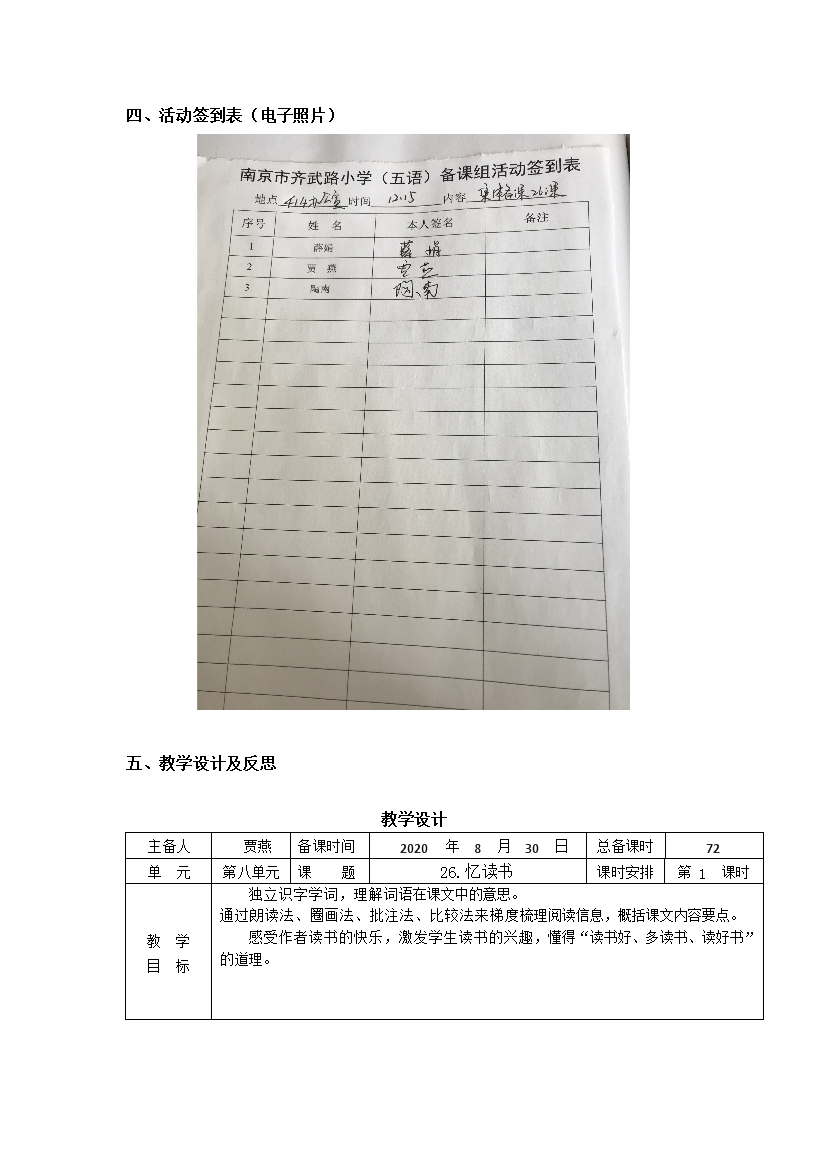 四、活动签到表（电子照片）
南京市齐武路小学（五语）备课组活动签到表
地点 414办公室 时间 12:15 内容 集体备课26课
序号 姓 名 本人签名 备注
1 薛娟 薛 娟
2 贾 燕
3 陶南 陶南
五、教学设计及反思
教学设计
主备人 贾燕 备课时间 2020 年 8 月 30 日 总备课时 72
单 元 第八单元 课 题 26.忆读书 课时安排 第 1 课时
教 学
目 标
独立识字学词，理解词语在课文中的意思。
通过朗读法、圈画法、批注法、比较法来梯度梳理阅读信息，概括课文内容要点。
感受作者读书的快乐，激发学生读书的兴趣，懂得“读书好、多读书、读好书”
的道理。